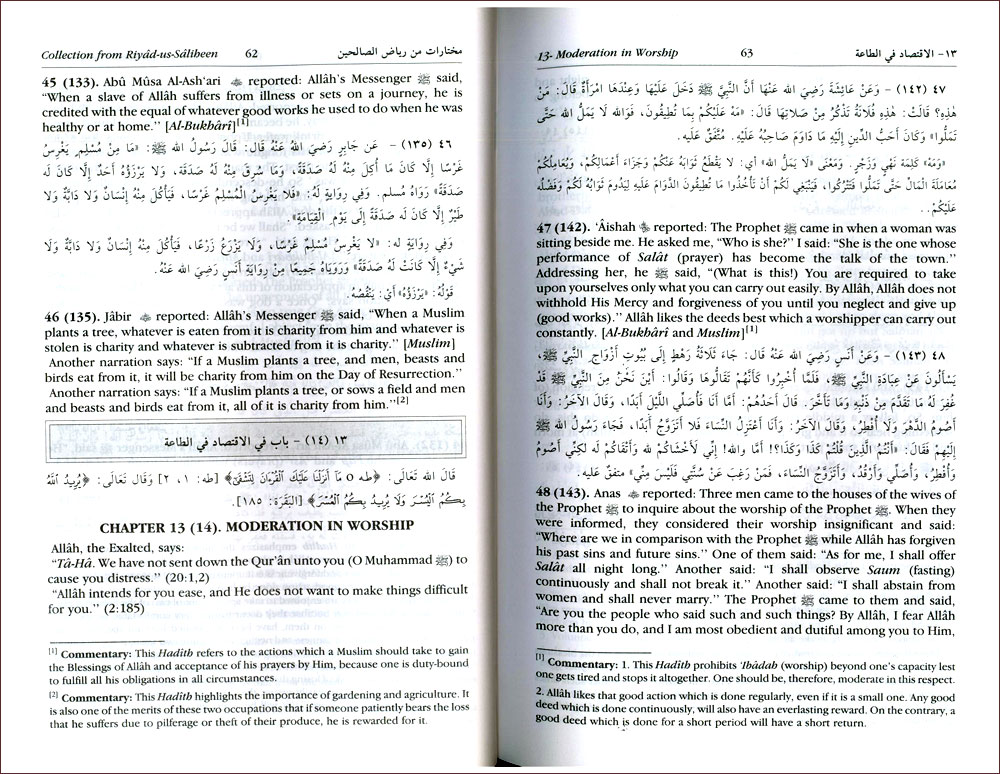 Collection from Riyâd-us-Sâliheen 62 مختارات من رياض الصالحين
45 (133). Abû Mûsa Al-Ash‘ari reported: Allâh's Messenger ﷺ said,
“When a slave of Allâh suffers from illness or sets on a journey, he is
credited with the equal of whatever good works he used to do when he was
healthy or at home.” [Al-Bukhârî][1]
٤٦ (١٣٥) - عَن جَابِرٍ رَضِيَ اللهُ عَنْهُ قَالَ: قَالَ رَسُولُ اللهِ ﷺ: «مَا مِنْ مُسْلِمٍ يَغْرِسُ
غَرْسًا إِلَّا كَانَ مَا أُكِلَ مِنْهُ لَهُ صَدَقَةً، وَمَا سُرِقَ مِنْهُ لَهُ صَدَقَةً، وَلا يَرْزَؤُهُ أَحَدٌ إِلَّا كَانَ لَهُ
صَدَقَةً» رَوَاهُ مُسلم. وَفِي رِوَايَةٍ لَهُ: «فَلا يَغْرِسُ الْمُسْلِمُ غَرْسًا، فَيَأْكُلَ مِنْهُ إِنْسَانٌ وَلا دَابَّةٌ وَلا
طَيْرٌ إِلَّا كَانَ لَه صَدَقَةً إِلَى يَوْمِ الْقِيَامَةِ».
وَفِي رِوَايَةٍ له: «لا يَغْرِسُ مُسْلِمٌ غَرْسًا، وَلا يَزْرَعُ زَرْعًا، فَيَأْكُلَ مِنْهُ إِنْسَانٌ وَلا دَابَّةٌ وَلا
شَيْءٌ إِلَّا كَانَتْ لَهُ صَدَقَةً» وَرَوَيَاهُ جَمِيعًا مِنْ رِوَايَةِ أَنَسٍ رَضِيَ اللهُ عَنْهُ.
قَوْلُهُ: «يَرْزَؤُهُ» أَيْ: يَنْقُصُهُ.
46 (135). Jâbir reported: Allâh's Messenger ﷺ said, “When a Muslim
plants a tree, whatever is eaten from it is charity from him and whatever is
stolen is charity and whatever is subtracted from it is charity.” [Muslim]
Another narration says: “If a Muslim plants a tree, and men, beasts and
birds eat from it, it will be charity from him on the Day of Resurrection.”
Another narration says: “If a Muslim plants a tree, or sows a field and men
and beasts and birds eat from it, all of it is charity from him.”[2]
١٣ (١٤) - باب في الاقتصاد في الطاعة
قَالَ الله تَعَالَى: ﴿طه ۝ مَآ أَنزَلْنَا عَلَيْكَ ٱلْقُرْءَانَ لِتَشْقَىٰٓ﴾ [طه: ١، ٢] وَقَال تَعَالَى: ﴿يُرِيدُ اللَّهُ
بِكُمُ ٱلْيُسْرَ وَلَا يُرِيدُ بِكُمُ ٱلْعُسْرَ﴾ [البَقَرَة: ١٨٥].
CHAPTER 13 (14). MODERATION IN WORSHIP
Allâh, the Exalted, says:
“Tâ-Hâ. We have not sent down the Qur'ân unto you (O Muhammad ﷺ) to
cause you distress.” (20:1,2)
“Allâh intends for you ease, and He does not want to make things difficult
for you.” (2:185)
[1] Commentary: This Hadîth refers to the actions which a Muslim should take to gain
the Blessings of Allâh and acceptance of his prayers by Him, because one is duty-bound
to fulfill all his obligations in all circumstances.
[2] Commentary: This Hadîth highlights the importance of gardening and agriculture. It
is also one of the merits of these two occupations that if someone patiently bears the loss
that he suffers due to pilferage or theft of their produce, he is rewarded for it.
13- Moderation in Worship 63 ١٣- الاقتصاد في الطاعة
٤٧ (١٤٢) - وَعَن عَائِشَةَ رَضِيَ الله عَنْهَا أَنَّ النَّبِيَّ ﷺ دَخَلَ عَلَيْهَا وَعِنْدَهَا امْرَأَةٌ قَالَ: مَنْ
هٰذِهِ؟ قَالَتْ: هٰذِهِ فُلَانَةُ تَذْكُرُ مِنْ صَلَاتِهَا قَالَ: «مَهْ عَلَيْكُمْ بِمَا تُطِيقُونَ، فَوَالله لَا يَمَلُّ الله حَتَّى
تَمَلُّوا» وَكَانَ أَحَبُّ الدِّينِ إِلَيْهِ مَا دَاوَمَ صَاحِبُهُ عَلَيْهِ. مُتَّفَقٌ عَلَيه.
«وَمَهْ» كَلِمَة نَهْي وَزَجْرٍ. وَمَعْنَى «لَا يَمَلُّ الله» أي: لَا يَقْطَعُ ثَوَابَهُ عَنْكُمْ وَجَزَاءَ أَعْمَالِكُمْ، وَيُعَامِلُكُمْ
مُعَامَلَةَ الْمَالِّ حَتَّى تَمَلُّوا فَتَتْرُكُوا، فَيَنْبَغِي لَكُمْ أَنْ تَأْخُذُوا مَا تُطِيقُونَ الدَّوَامَ عَلَيْهِ لِيَدُومَ ثَوَابُهُ لَكُمْ وَفَضْلُهُ
عَلَيْكُمْ..
47 (142). ‘Âishah reported: The Prophet ﷺ came in when a woman was
sitting beside me. He asked me, “Who is she?” I said: “She is the one whose
performance of Salât (prayer) has become the talk of the town.”
Addressing her, he ﷺ said, “(What is this!) You are required to take
upon yourselves only what you can carry out easily. By Allâh, Allâh does not
withhold His Mercy and forgiveness of you until you neglect and give up
(good works).” Allâh likes the deeds best which a worshipper can carry out
constantly. [Al-Bukhârî and Muslim][1]
٤٨ (١٤٣) - وَعَنْ أَنَسٍ رَضِيَ الله عَنْهُ قَال: جَاءَ ثَلَاثَةُ رَهْطٍ إِلَى بُيُوتِ أَزْوَاجِ النَّبِيِّ ﷺ،
يَسْأَلُونَ عَنْ عِبَادَةِ النَّبِيِّ ﷺ، فَلَمَّا أُخْبِرُوا كَأَنَّهُمْ تَقَالُّوهَا وَقَالُوا: أَيْنَ نَحْنُ مِنَ النَّبِيِّ ﷺ قَدْ
غُفِرَ لَهُ مَا تَقَدَّمَ مِنْ ذَنْبِهِ وَمَا تَأَخَّرَ. قَالَ أَحَدُهُمْ: أَمَّا أَنَا فَأُصَلِّي اللَّيْلَ أَبَدًا، وَقَالَ الآخَرُ: وَأَنَا
أَصُومُ الدَّهْرَ وَلَا أُفْطِرُ، وَقَالَ الآخَرُ: وَأَنَا أَعْتَزِلُ النِّسَاءَ فَلَا أَتَزَوَّجُ أَبَدًا، فَجَاءَ رَسُولُ الله ﷺ
إِلَيْهِمْ فَقَالَ: «أَنْتُمُ الَّذِينَ قُلْتُمْ كَذَا وَكَذَا؟! أَمَا وَالله! إِنِّي لَأَخْشَاكُمْ لله وَأَتْقَاكُمْ لَه لكِنِّي أَصُومُ
وَأُفْطِرُ، وَأُصَلِّي وَأَرْقُدُ، وَأَتَزَوَّجُ النِّسَاءَ، فَمَنْ رَغِبَ عَنْ سُنَّتِي فَلَيْسَ مِنِّي» متفقٌ عَليه.
48 (143). Anas reported: Three men came to the houses of the wives of
the Prophet ﷺ to inquire about the worship of the Prophet ﷺ. When they
were informed, they considered their worship insignificant and said:
“Where are we in comparison with the Prophet ﷺ while Allâh has forgiven
his past sins and future sins.” One of them said: “As for me, I shall offer
Salât all night long.” Another said: “I shall observe Saum (fasting)
continuously and shall not break it.” Another said: “I shall abstain from
women and shall never marry.” The Prophet ﷺ came to them and said,
“Are you the people who said such and such things? By Allâh, I fear Allâh
more than you do, and I am most obedient and dutiful among you to Him,
[1] Commentary: 1. This Hadîth prohibits ‘Ibâdah (worship) beyond one's capacity lest
one gets tired and stops it altogether. One should be, therefore, moderate in this respect.
2. Allâh likes that good action which is done regularly, even if it is a small one. Any good
deed which is done continuously, will also have an everlasting reward. On the contrary, a
good deed which is done for a short period will have a short return.